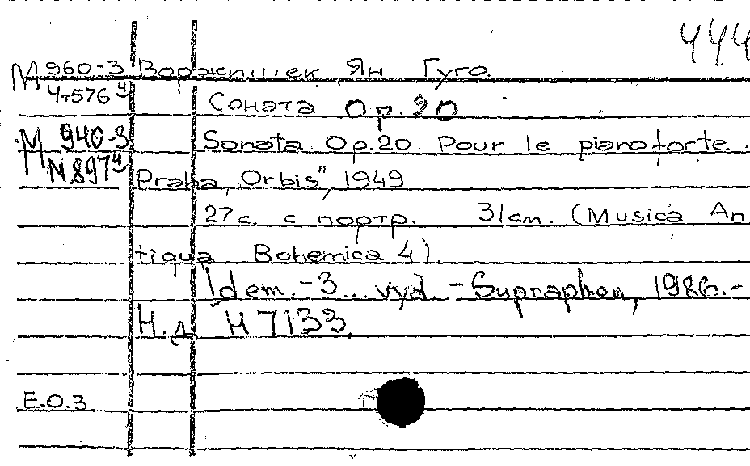 444
М 960-3 Воржишек Ян Гуго.
Чт576 4
Соната Ор.20
М 940-3 Sonata Op.20 Pour le pianoforte.
N897 4
Praha, "Orbis", 1949
27с. с портр. 31cm. (Musica An
tiqua Bohemica 4).
Idem. - 3. vyd. - Supraphon, 1986. -
Н.д. H 7133.
Е.О.З.